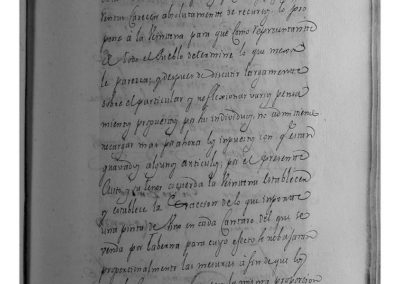 carecen absolutamente de recursos lo pro
pone à la Veintena para que Como representante
de todo el Pueblo determine lo que mexor
le parezca; y despues de discutir largamente
sobre el particular y reflexionar varios pensa
mientos propuestos por sus individuos no
recargar mas por ahora los impuestos con q.e estan
gravados algunos articulos; por el presente
Auto y su tenor acuerda la Veintena establecer
y establece la Exaccion de lo que importe
una pinta de Vino en cada Cantaro del que se
venda por taberna para cuyo efecto se rebajaran
proporcionalmente las mesuras a fin de que los
proporcion